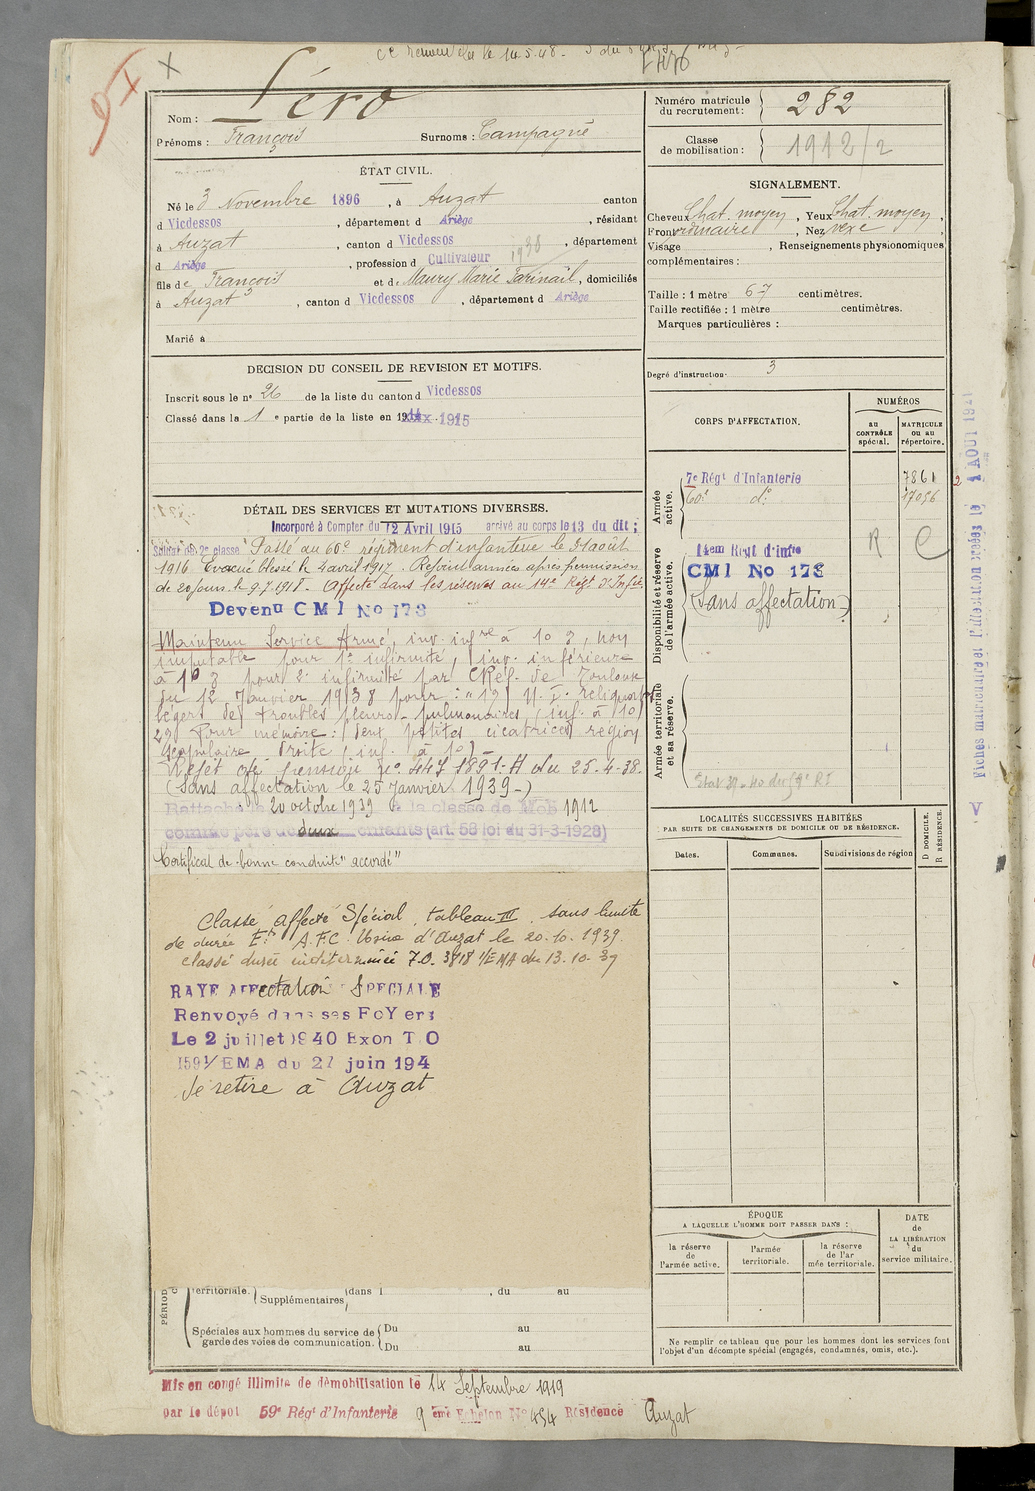 cc renouvelée le 14.5.48.
Nom : Léro
Prénoms : François Surnoms : Campagne
ÉTAT CIVIL.
Né le 3 Novembre 1896, à Auzat canton
d Vicdessos, département d Ariège, résidant
à Auzat, canton d Vicdessos, département
d Ariège, profession d Cultivateur 1938
fils de François et de Maury Marie, domiciliés
à Auzat, canton d Vicdessos, département d Ariège
Marié à
DECISION DU CONSEIL DE REVISION ET MOTIFS.
Inscrit sous le n° 26 de la liste du canton d Vicdessos
Classé dans la 1 e partie de la liste en 1915
DÉTAIL DES SERVICES ET MUTATIONS DIVERSES.
Incorporé à Compter du 12 Avril 1915 arrivé au corps le 13 du dit ;
Soldat de 2e classe Passé au 60e régiment d'infanterie le 31 août
1916. Evacué blessé le 4 avril 1917. Rejoint armées après permission
de 20 jours le 9.7.1918. Affecté dans les réserves au 14e Régt d'Infie
Devenu CMI No 178
Maintenu Service Armé, inv. infre à 10 %, non
imputable pour 1e infirmité, inv. inférieure
à 10 % pour 2e infirmité par C Réf. de Toulouse
du 12 Janvier 1938 pour : "1°) reliquats
légers de troubles pleuro-pulmonaires (inf. à 10)
2°) Pour mémoire : deux petites cicatrices région
scapulaire droite (inf. à 10)
Rejet de pension n° 447 1891-H du 25-4-38.
(Sans affectation le 25 Janvier 1939-)
Rattaché le 20 octobre 1939 à la classe de Mob 1912
comme père de deux enfants (art. 58 loi du 31-3-1928)
Certificat de bonne conduite "accordé"
Classé affecté Spécial, tableau III, sans limite
de durée Ets A.F.C. Usine d'Auzat le 20.10.1939.
classé durée indéterminée T.O. 3818 1/EMA du 13.10.39
RAYE AFFectation SPECIALE
Renvoyé dans ses FoYers
Le 2 juillet 1940 Exon T.O
1591/EMA du 27 juin 194
Se retire à Auzat
territoriale. Supplémentaires dans l , du au
Spéciales aux hommes du service de Du au
garde des voies de communication. Du au
Mis en congé illimité de démobilisation le 14 Septembre 1919
par le dépôt 59e Régt d'Infanterie 9 eme Echelon No 454 Résidence Auzat
Numéro matricule
du recrutement : 282
Classe
de mobilisation : 1912/2
SIGNALEMENT.
Cheveux Chat. moyen, Yeux Chat. moyen,
Front ordinaire, Nez vexe,
Visage , Renseignements physionomiques
complémentaires :
Taille : 1 mètre 67 centimètres.
Taille rectifiée : 1 mètre centimètres.
Marques particulières :
Degré d'instruction : 3
CORPS D'AFFECTATION.
NUMÉROS
au
CONTRÔLE
spécial.
MATRICULE
ou au
répertoire.
Armée
active.
7e Régt d'Infanterie 7861
60e do 17056
Disponibilité et réserve
de l'armée active.
14em Regt d'infie R C
CMI No 178
(Sans affectation)
Armée territoriale
et sa réserve.
LOCALITÉS SUCCESSIVES HABITÉES
PAR SUITE DE CHANGEMENTS DE DOMICILE OU DE RÉSIDENCE.
Dates. Communes. Subdivisions de région
D DOMICILE.
R RÉSIDENCE.
ÉPOQUE
A LAQUELLE L'HOMME DOIT PASSER DANS :
la réserve
de
l'armée active.
l'armée
territoriale.
la réserve
de l'ar
mée territoriale.
DATE
de
LA LIBÉRATION
du
service militaire.
Ne remplir ce tableau que pour les hommes dont les services font
l'objet d'un décompte spécial (engagés, condamnés, omis, etc.).
Fiches matriculaire et d'affectation créées le 1 AOUT 1941
V